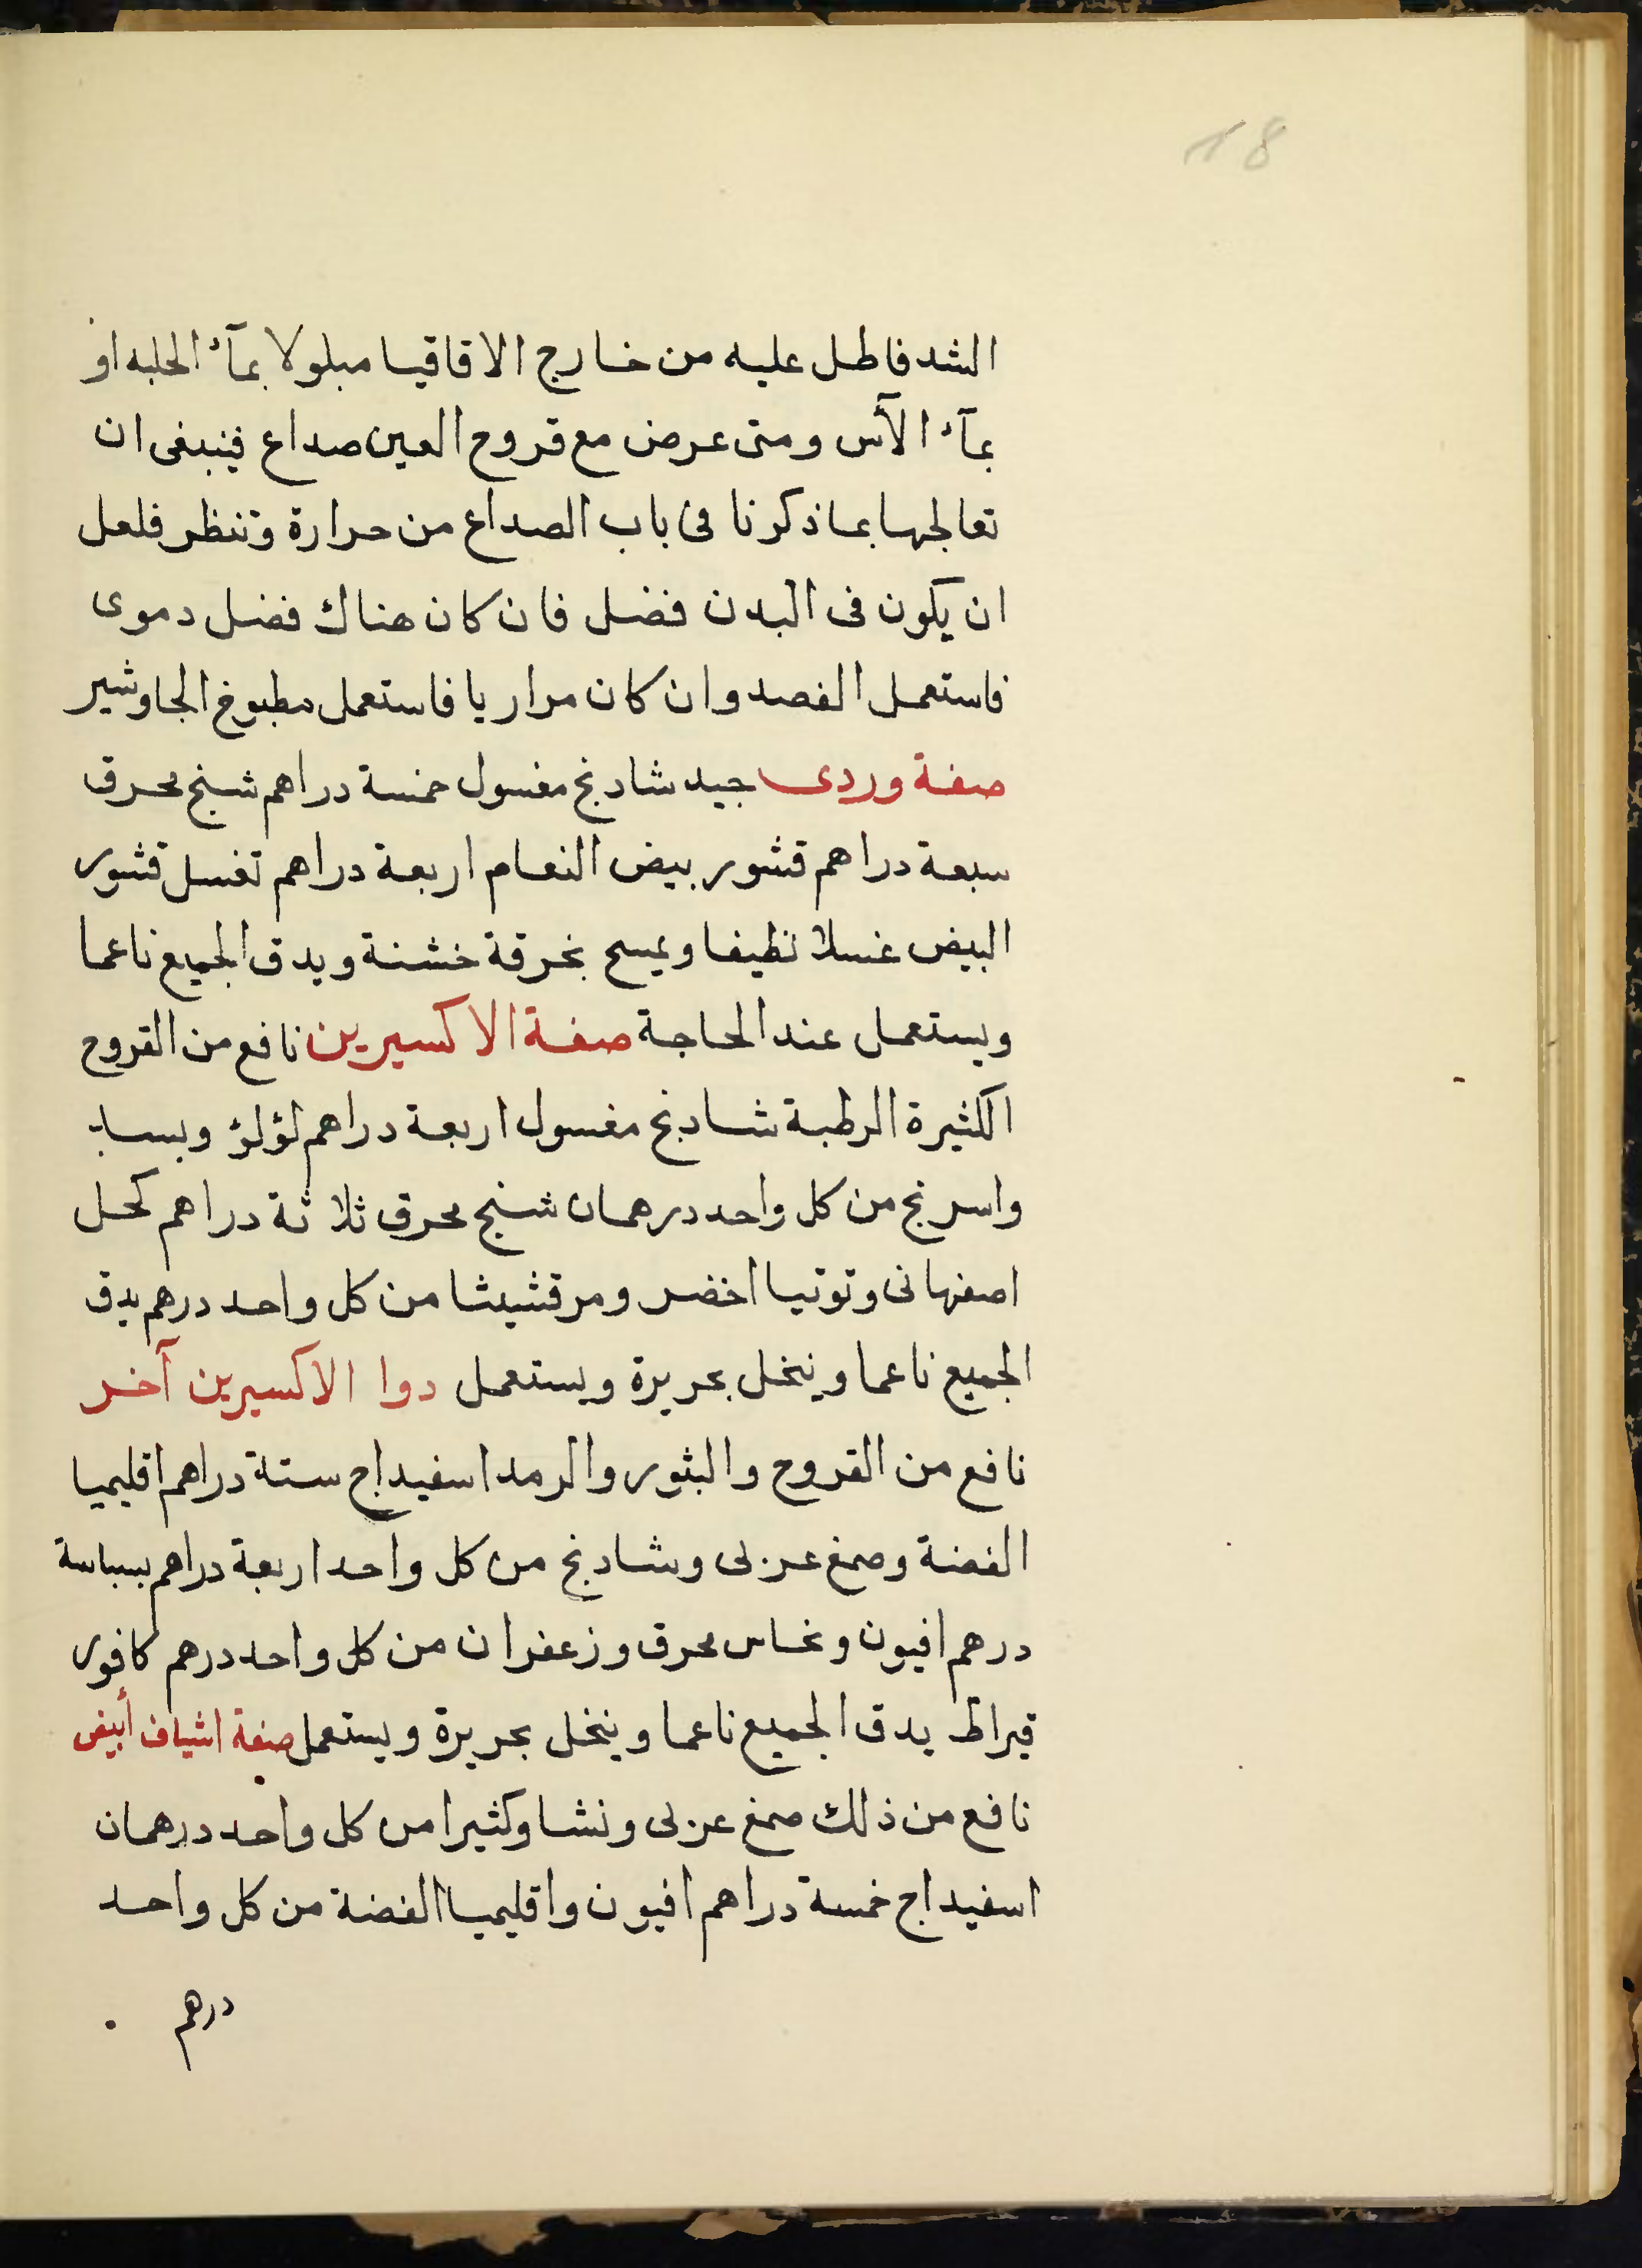 18
الشد فاطل عليه من خارج الاقاقيا مبلولا بمآء الحلبه او
بمآء الآس ومتى عرض مع قروح العين صداع فينبغى ان
تعالجها بما ذكرنا فى باب الصداع من حرارة وتنظر فلعل
ان يكون فى البدن فضل فان كان هناك فضل دموى
فاستعمل الفصد وان كان مراريا فاستعمل مطبوخ الجاوشير
صفة وردى جيد شادنج مغسول خمسة دراهم شنج محرق
سبعة دراهم قشور بيض النعام اربعة دراهم تغسل قشور
البيض غسلا نظيفا ويمسح بخرقة خشنة ويدق الجميع ناعما
ويستعمل عند الحاجة صفة الاكسيرين نافع من القروح
الكثيرة الرطبة شادنج مغسول اربعة دراهم لؤلؤ وبسد
واسرنج من كل واحد درهمان شنج محرق ثلاثة دراهم كحل
اصفهانى وتوتيا اخضر ومرقشيثا من كل واحد درهم يدق
الجميع ناعما وينخل بحريرة ويستعمل دوا الاكسيرين آخر
نافع من القروح والبثور والرمد اسفيداج ستة دراهم اقليميا
الفضة وصمغ عربى وشادنج من كل واحد اربعة دراهم بسباسة
درهم افيون ونحاس محرق وزعفران من كل واحد درهم كافور
قيراط يدق الجميع ناعما وينخل بحريرة ويستعمل صفة اشياف أبيض
نافع من ذلك صمغ عربى ونشا وكثيرا من كل واحد درهمان
اسفيداج خمسة دراهم افيون واقليميا الفضة من كل واحد
درهم